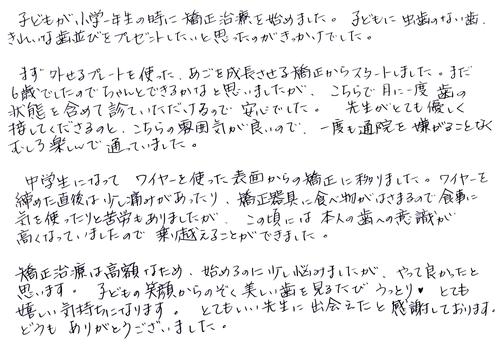 子どもが小学一年生の時に矯正治療を始めました。子どもに虫歯のない歯、
きれいな歯並びをプレゼントしたいと思ったのがきっかけでした。
まず外せるプレートを使った、あごを成長させる矯正からスタートしました。まだ
6歳でしたのでちゃんとできるかなと思いましたが、こちらで月に一度歯の
状態を含めて診ていただけるので安心でした。先生がとても優しく
接してくださるのと、こちらの雰囲気が良いので、一度も通院を嫌がることなく
むしろ楽しんで通っていました。
中学生になってワイヤーを使った表面からの矯正に移りました。ワイヤーを
締めた直後は少し痛みがあったり、矯正器具に食べ物がはさまるので食事に
気を使ったりと苦労もありましたが、この頃には本人の歯への意識が
高くなっていましたので乗り越えることができました。
矯正治療は高額なため、始めるのに少し悩みましたが、やって良かったと
思います。子どもの笑顔からのぞく美しい歯を見るたびうっとり♥とても
嬉しい気持ちになります。とてもいい先生に出会えたと感謝しております。
どうもありがとうございました。